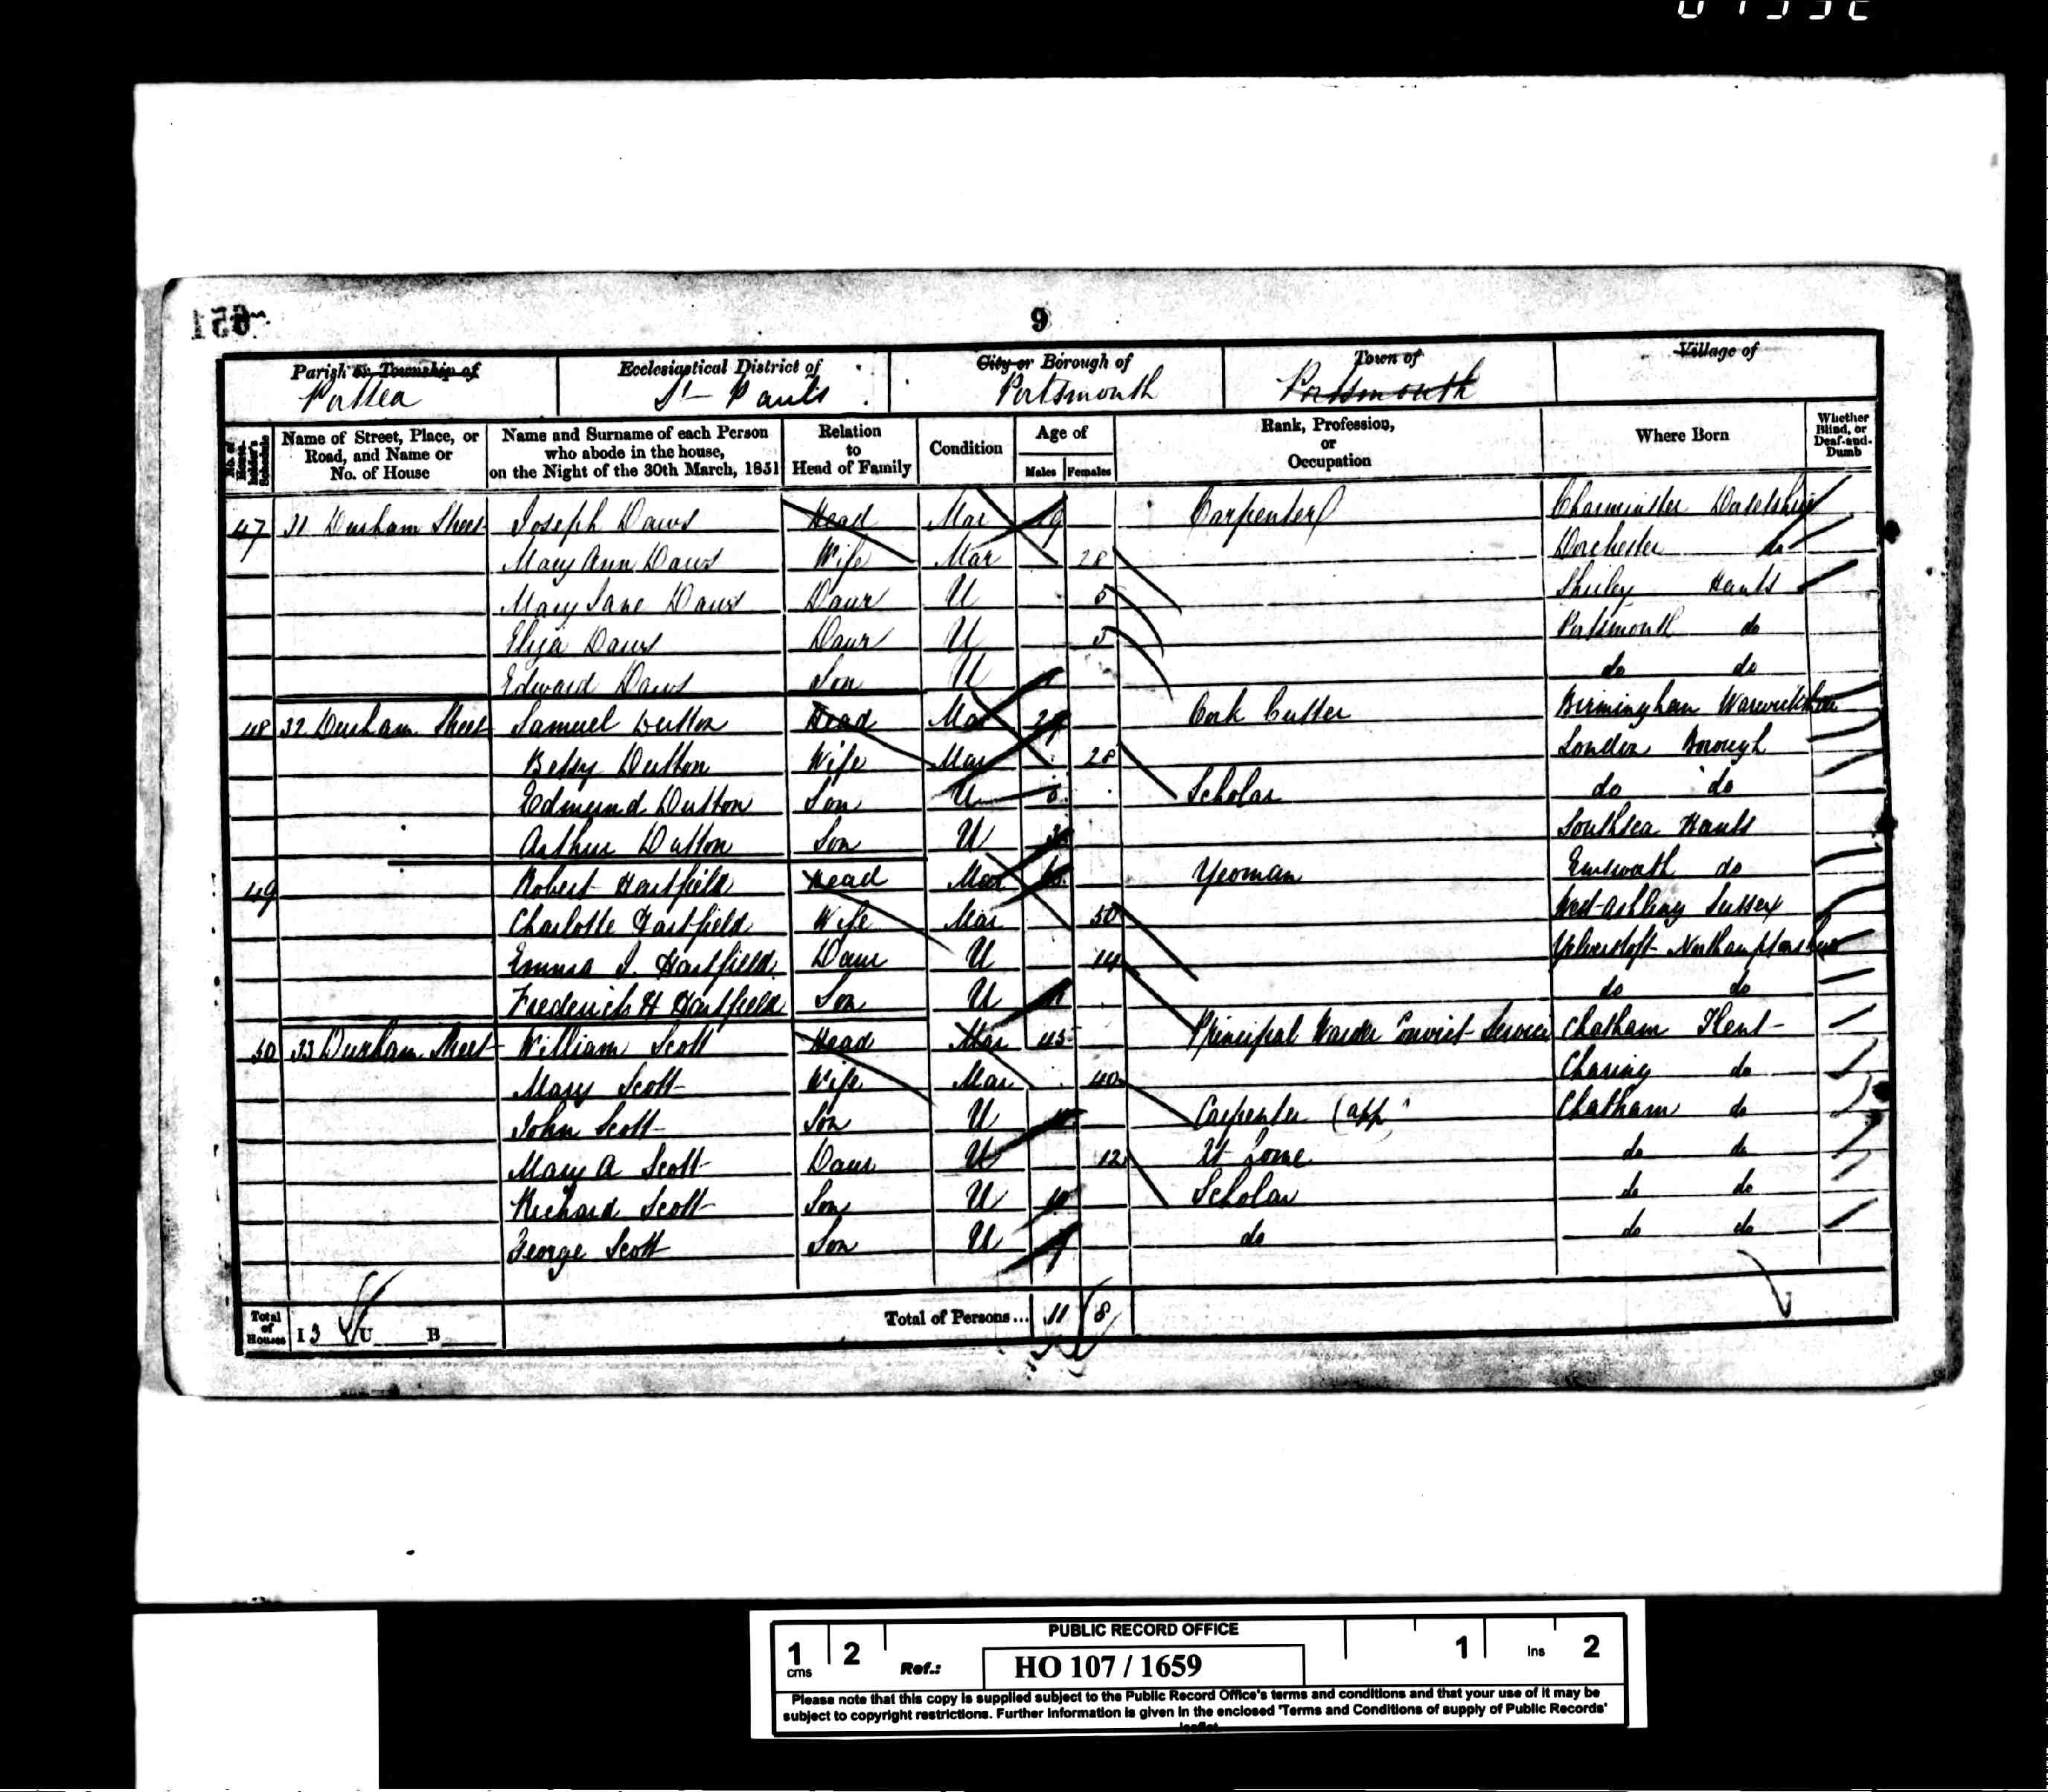 9
Parish or Township of Ecclesiastical District of City or Borough of Town of Village of
Portsea St Pauls Portsmouth Portsmouth
No. of House-holder's Schedule Name of Street, Place, or Road, and Name or No. of House Name and Surname of each Person who abode in the house, on the Night of the 30th March, 1851 Relation to Head of Family Condition Age of Males Females Rank, Profession, or Occupation Where Born Whether Blind, or Deaf-and-Dumb
47 31 Durham Street Joseph Daws Head Mar Carpenter Charminster Dorsetshire
Mary Ann Daws Wife Mar 28 Dorchester do
Mary Jane Daws Daur U 5 Shirley Hants
Eliza Daws Daur U Portsmouth do
Edward Daws Son U do do
48 32 Durham Street Samuel Dutton Head Mar 29 Cork Cutter Birmingham Warwickshire
Betsy Dutton Wife Mar 28 London Borough
Edmund Dutton Son U Scholar do do
Arthur Dutton Son U Southsea Hants
49 Robert Hartfield Head Mar Yeoman Emsworth do
Charlotte Hartfield Wife Mar 50 West Ashling Sussex
Emma J. Hartfield Daur U 14 Northamptonshire
Frederick H Hartfield Son U do do
50 33 Durham Street William Scott Head Mar 45 Principal Warder Convict Service Chatham Kent
Mary Scott Wife Mar 40 Charing do
John Scott Son U Carpenter (app) Chatham do
Mary A Scott Daur U 12 At Home do do
Richard Scott Son U 10 Scholar do do
George Scott Son U do do do
Total of Houses I 3 U B Total of Persons... 11 8
PUBLIC RECORD OFFICE
1 cms 2 Ref.: HO 107 / 1659 1 Ins 2
Please note that this copy is supplied subject to the Public Record Office's terms and conditions and that your use of it may be
subject to copyright restrictions. Further information is given in the enclosed 'Terms and Conditions of supply of Public Records'
leaflet